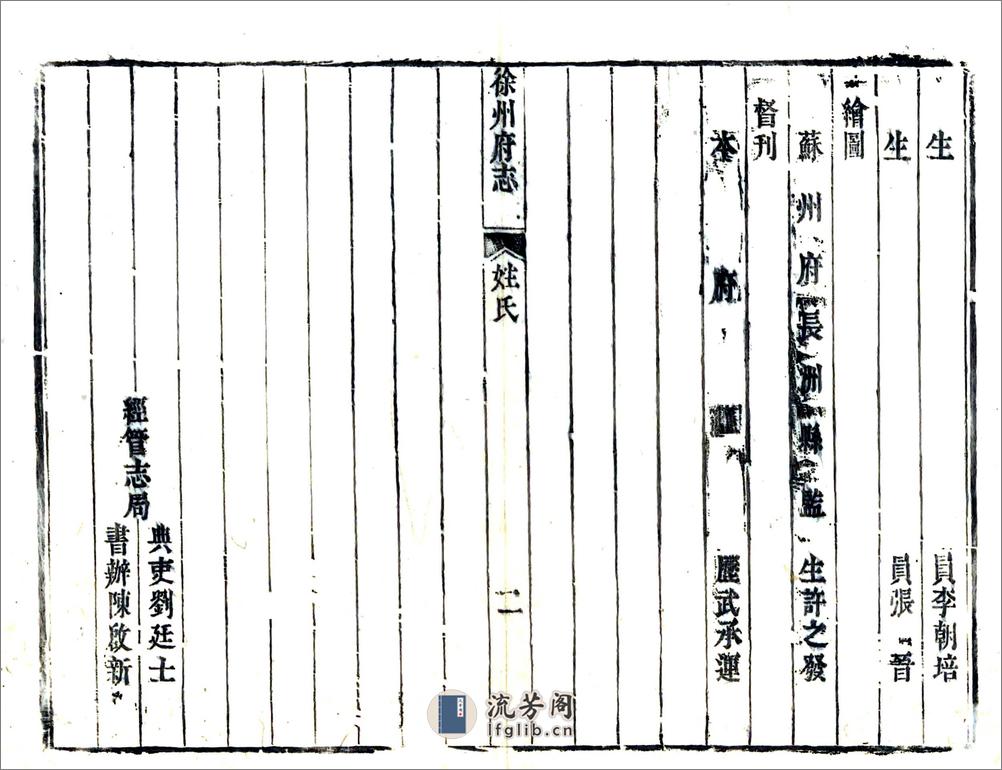 生 員李朝培
生 員張 晉
繪圖
蘇州府長洲縣監生許之發
督刊
本府 歷武承運
徐州府志 姓氏 二
經管志局
典吏劉廷士
書辦陳啟新
流芳阁
lfglib.cn